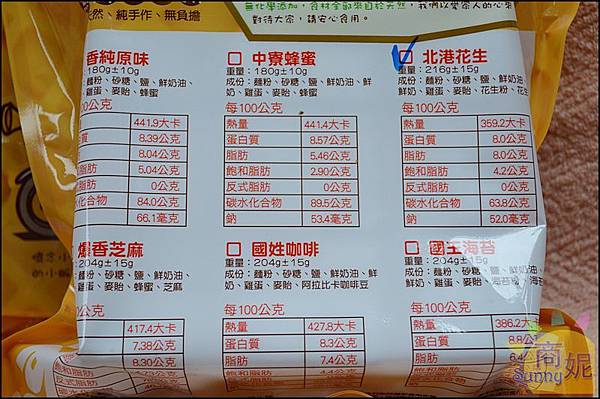 然、純手作、無負擔
無化學添加,食材全取來自於天然,我們以愛家人的心來
對待大眾,請安心食用。
香純原味
重量:180g±10g
成份:麵粉、砂糖、鹽、鮮奶油、鮮
奶、雞蛋、麥胎、蜂蜜
每100公克
441.9大卡
8.39公克
8.04公克
脂肪 5.04公克
脂肪 0公克
水化合物 84.0公克
66.1毫克
中寮蜂蜜
重量:180g±10g
成份:麵粉、砂糖、鹽、鮮奶油、鮮
奶、雞蛋、麥胎、蜂蜜
每100公克
熱量 441.4大卡
蛋白質 8.57公克
脂肪 5.46公克
飽和脂肪 2.90公克
反式脂肪 0公克
碳水化合物 89.5公克
鈉 53.4毫克
北港花生
重量:216g±15g
成份:麵粉、砂糖、鹽、鮮奶油、鮮
奶、雞蛋、麥胎、花生粉、花
每100公克
熱量 359.2大卡
蛋白質 8.0公克
脂肪 8.0公克
飽和脂肪 4.2公克
反式脂肪 0公克
碳水化合物 63.8公克
鈉 52.0毫克
爆香芝麻
重量:204g±15g
成份:麵粉、砂糖、鹽、鮮奶油、
鮮奶、雞蛋、麥胎、蜂蜜、芝麻
每100公克
417.4大卡
7.38公克
8.30公克
飽和脂肪
反式脂肪
碳水化合物
國姓咖啡
重量:204g±15g
成份:麵粉、砂糖、鹽、鮮奶油、鮮
奶、雞蛋、麥胎、阿拉比卡咖啡豆
每100公克
熱量 427.8大卡
蛋白質 8.3公克
脂肪 7.4公克
飽和脂肪 4.4公克
反式脂肪 0公克
國王海苔
重量:204g±15g
成份:麵粉、砂糖、鹽、鮮奶油、鮮
奶、雞蛋、麥胎、海苔
每100公克
熱量 386.2大卡
蛋白質 8.8公克
脂肪 6.4
飽和脂肪
反式脂肪
商妮
Sunny